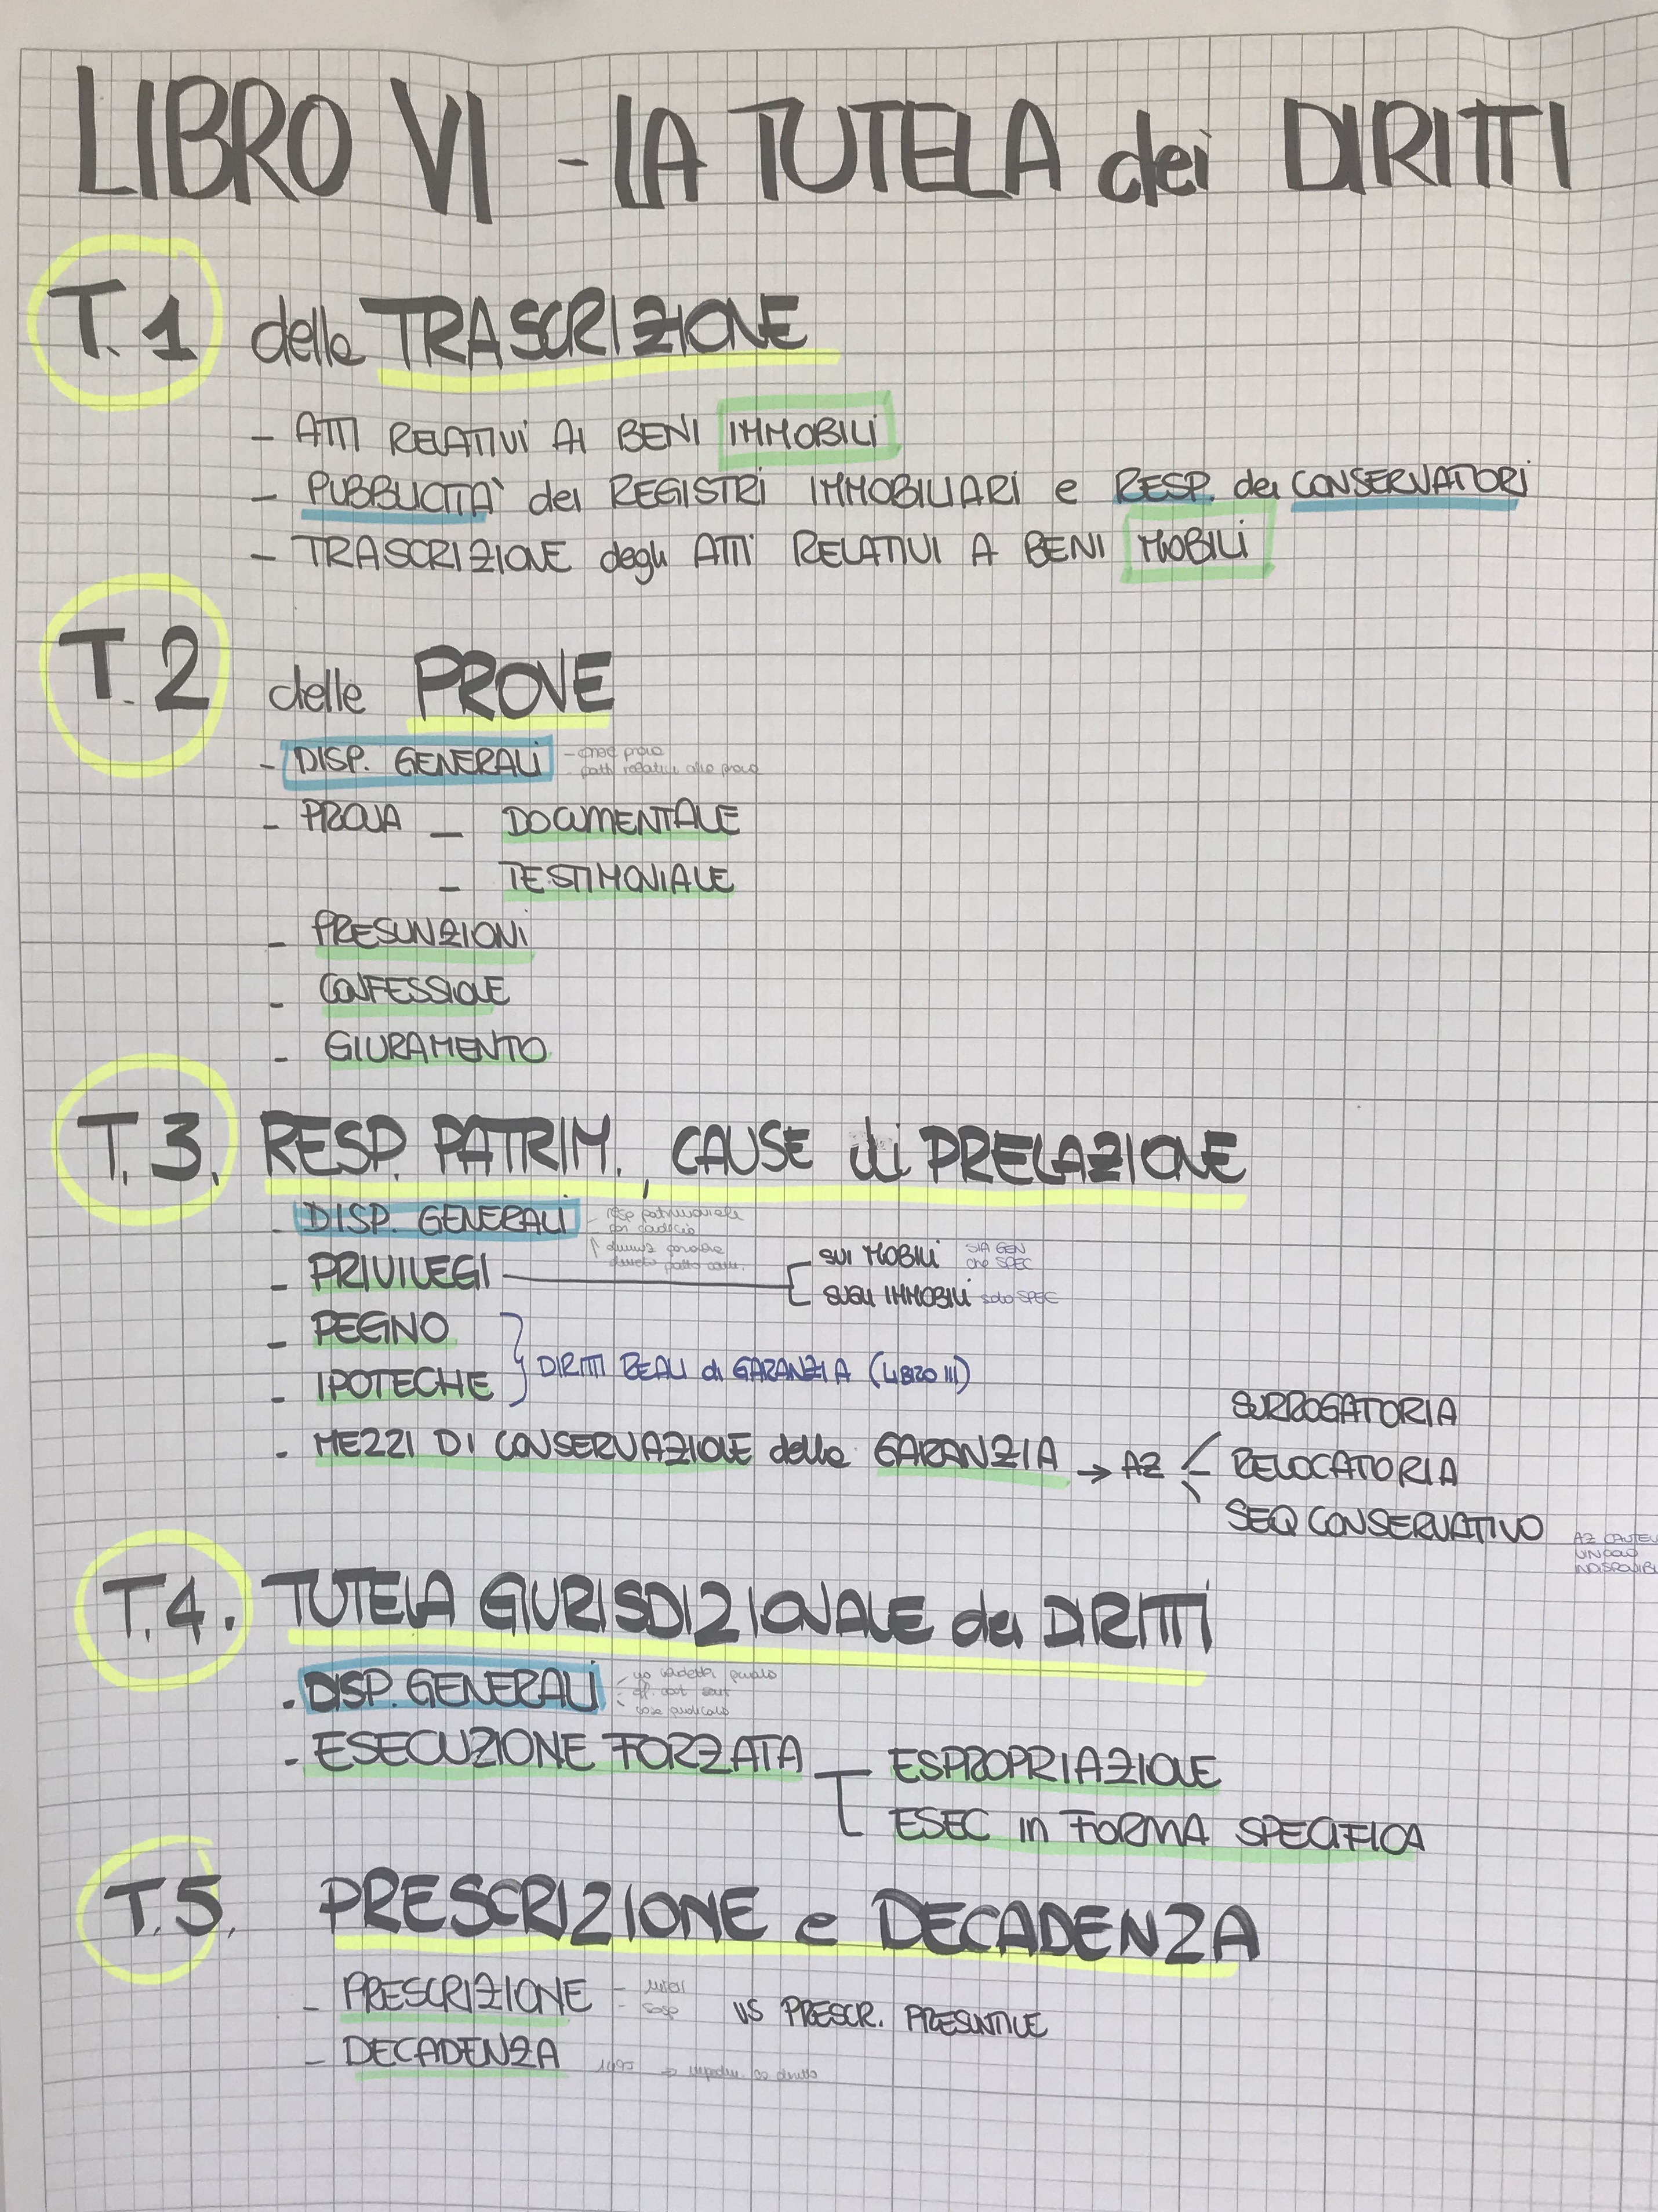 LIBRO VI - LA TUTELA dei DIRITTI
T.1 della TRASCRIZIONE
- ATTI RELATIVI AI BENI IMMOBILI
- PUBBLICITÀ dei REGISTRI IMMOBILIARI e RESP. dei CONSERVATORI
- TRASCRIZIONE degli ATTI RELATIVI A BENI MOBILI
T.2 delle PROVE
- DISP. GENERALI - onere prova
- patti relativi alla prova
- PROVA - DOCUMENTALE
- TESTIMONIALE
- PRESUNZIONI
- CONFESSIONE
- GIURAMENTO
T.3. RESP. PATRIM., CAUSE di PRELAZIONE
- DISP. GENERALI - resp patrimoniale
par condicio
- PRIVILEGI
SUI MOBILI SIA GEN che SPEC
SUGLI IMMOBILI solo SPEC
- PEGNO
- IPOTECHE } DIRITTI REALI di GARANZIA (LIBRO III)
- MEZZI DI CONSERVAZIONE della GARANZIA → AZ
SURROGATORIA
- REVOCATORIA
SEQ CONSERVATIVO
AZ CAUTEL
VINCOLO
INDISPONIBI
T.4. TUTELA GIURISDIZIONALE dei DIRITTI
- DISP. GENERALI
cosa giudicata
- ESECUZIONE FORZATA
ESPROPRIAZIONE
ESEC in FORMA SPECIFICA
T.5. PRESCRIZIONE e DECADENZA
- PRESCRIZIONE VS PRESCR. PRESUNTIVE
- DECADENZA